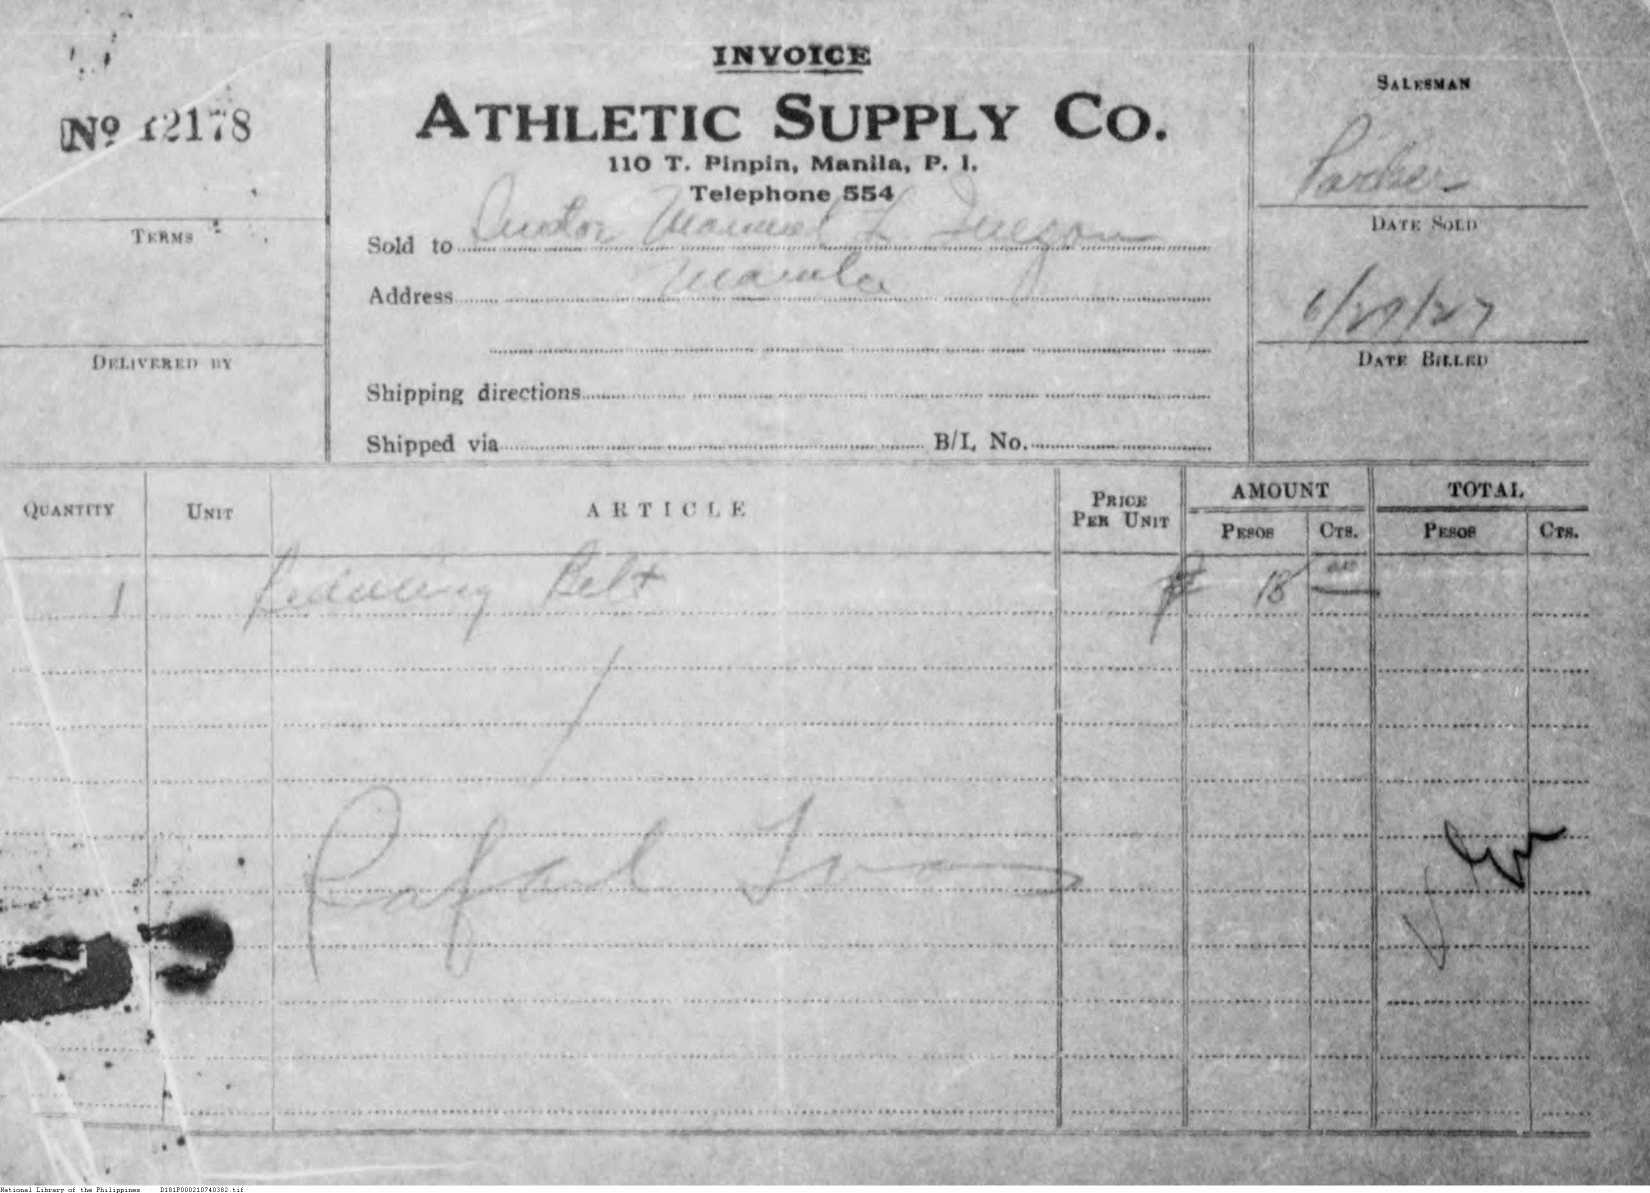 INVOICE
Nº 12178
ATHLETIC SUPPLY CO.
110 T. Pinpin, Manila, P. I.
Telephone 554
SALESMAN
Parker
TERMS
Sold to Manuel L. Quezon
DATE SOLD
Address Manila
6/29/27
DELIVERED BY
DATE BILLED
Shipping directions
Shipped via B/L No.
QUANTITY UNIT ARTICLE PRICE PER UNIT AMOUNT TOTAL
PESOS CTS. PESOS CTS.
1 Reducing Belt ₱ 18 00
Rafael
National Library of the Philippines D181P000210740382.tif